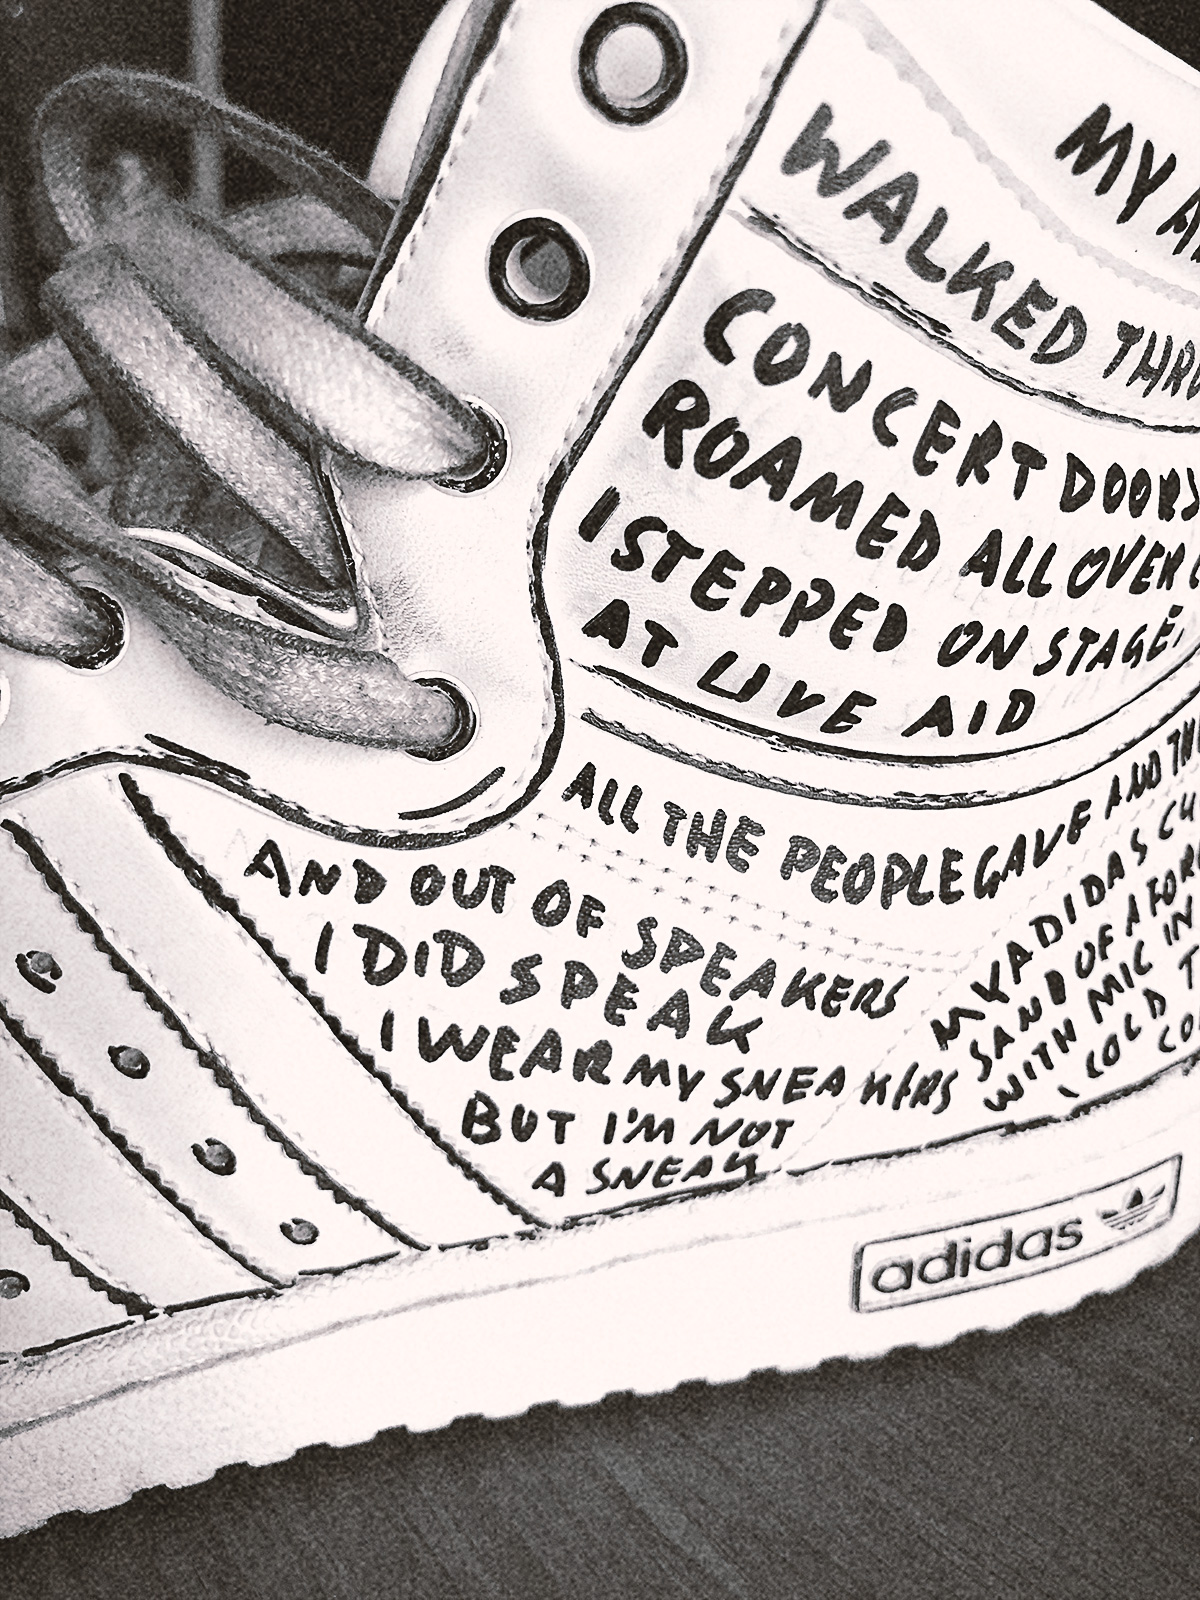 MY
WALKED
CONCERT DOORS
ROAMED ALL OVER
I STEPPED ON STAGE,
AT LIVE AID
ALL THE PEOPLE GAVE AND
AND OUT OF SPEAKERS
I DID SPEAK
I WEAR MY SNEAKERS
BUT I'M NOT
A SNEAK
MY ADIDAS
SAND OF A
WITH MIC IN
I COLD
adidas